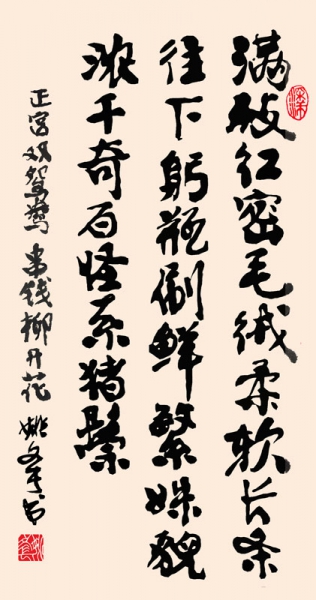 满枝红密毛绒柔软长条
往下躬瓶刷鲜繁姝貌
浓千奇百怪系猪鬃
正宫双鸳鸯 串钱柳开花 姚